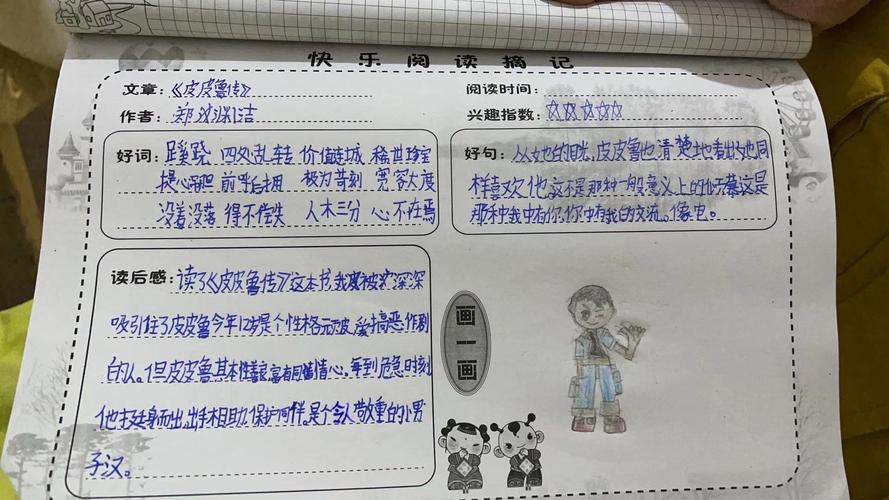 快乐阅读摘记
文章：《皮皮鲁传》
阅读时间：
作者：郑渊洁
兴趣指数：☆☆☆☆☆
好词：蹊跷 四处乱转 价值连城 稀世珍宝
提心吊胆 前呼后拥 极为苛刻 宽容大度
没着没落 得不偿失 入木三分 心不在焉
好句：从她的目光，皮皮鲁也清楚地看出她也同
样喜欢他这不是那种一般意义上的 这是
那种我中有你，你中有我的交流。像电。
读后感：读了《皮皮鲁传》这本书，我被 深深
吸引住了皮皮鲁今年12岁是个性格 皮，爱搞恶作剧
的人。但皮皮鲁其本性善良富有同情心，每到危急时刻
他挺身而出，出手相助，保护同伴。是个令人敬重的小男
子汉。
画一画